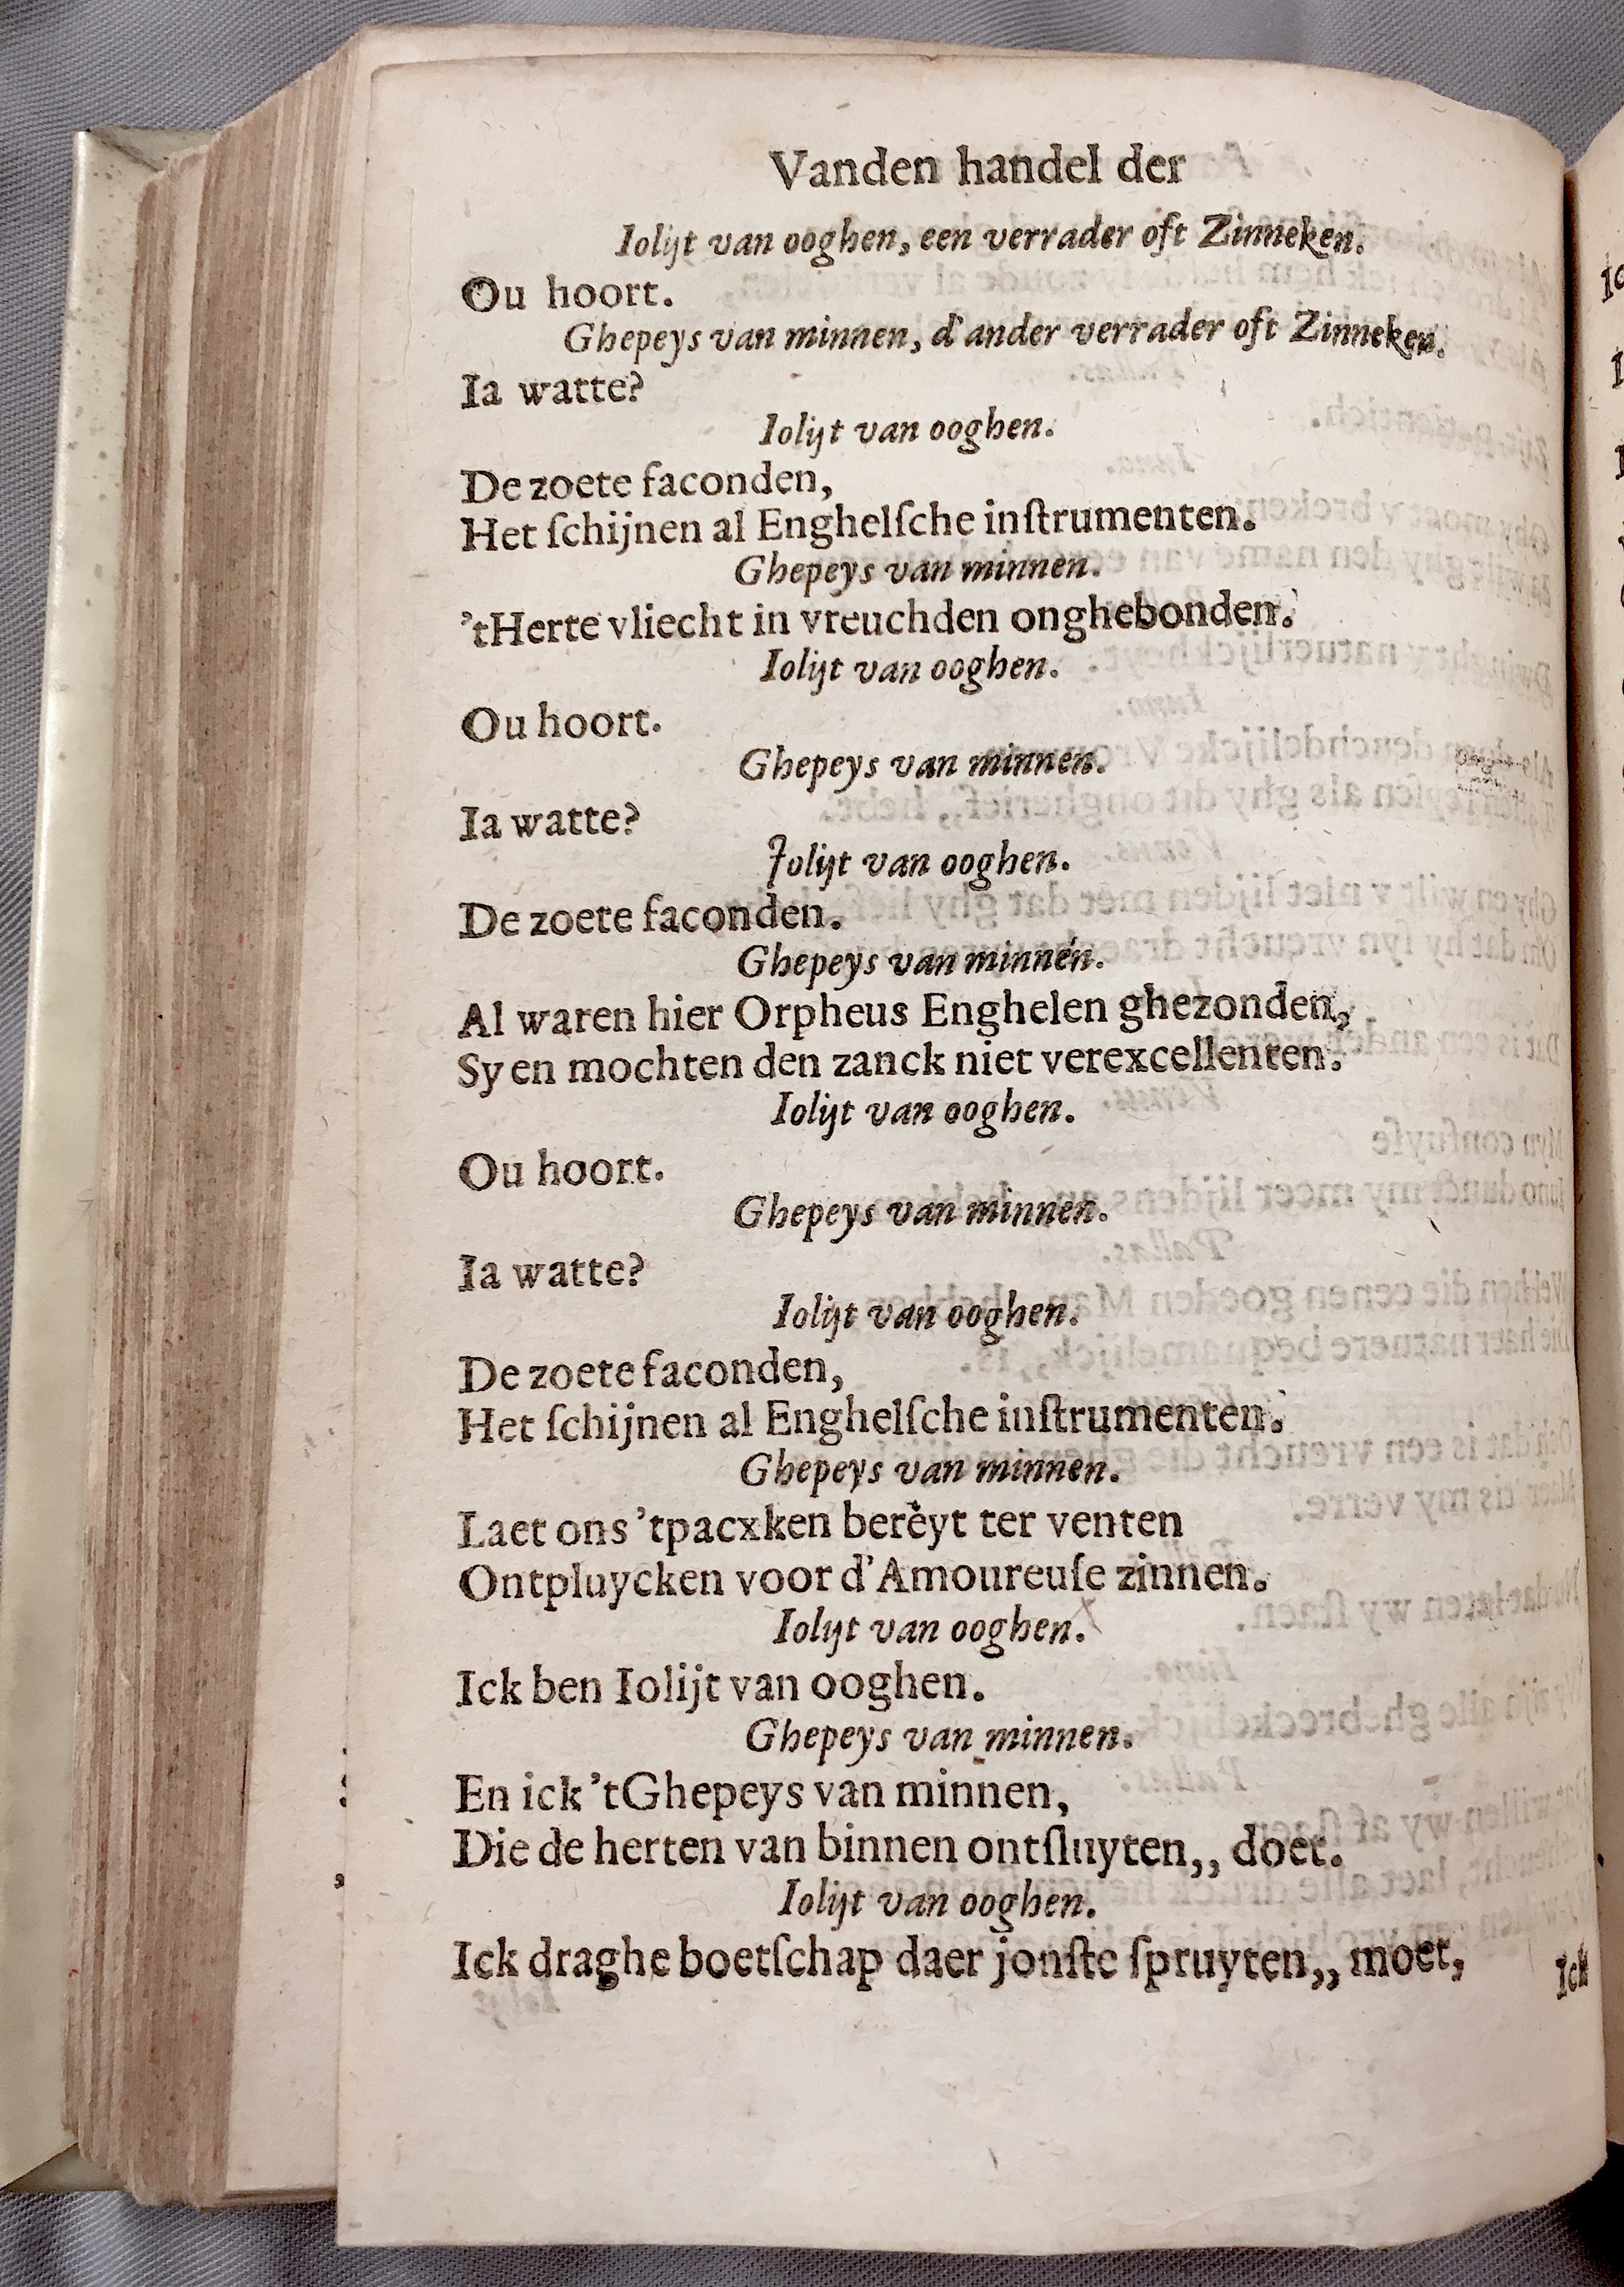 Vanden handel der
Iolijt van ooghen, een verrader oft Zinneken.
Ou hoort.
Ghepeys van minnen, d'ander verrader oft Zinneken.
Ia watte?
Iolijt van ooghen.
De zoete faconden,
Het ſchijnen al Enghelſche inſtrumenten.
Ghepeys van minnen.
'tHerte vliecht in vreuchden onghebonden.
Iolijt van ooghen.
Ou hoort.
Ghepeys van minnen.
Ia watte?
Jolijt van ooghen.
De zoete faconden.
Ghepeys van minnen.
Al waren hier Orpheus Enghelen ghezonden,
Sy en mochten den zanck niet verexcellenten.
Iolijt van ooghen.
Ou hoort.
Ghepeys van minnen.
Ia watte?
Iolijt van ooghen.
De zoete faconden,
Het ſchijnen al Enghelſche inſtrumenten.
Ghepeys van minnen.
Laet ons 'tpacxken bereyt ter venten
Ontpluycken voor d'Amoureuſe zinnen.
Iolijt van ooghen.
Ick ben Iolijt van ooghen.
Ghepeys van minnen.
En ick 'tGhepeys van minnen,
Die de herten van binnen ontſluyten,, doet.
Iolijt van ooghen.
Ick draghe boetſchap daer jonſte ſpruyten,, moet,
Ick